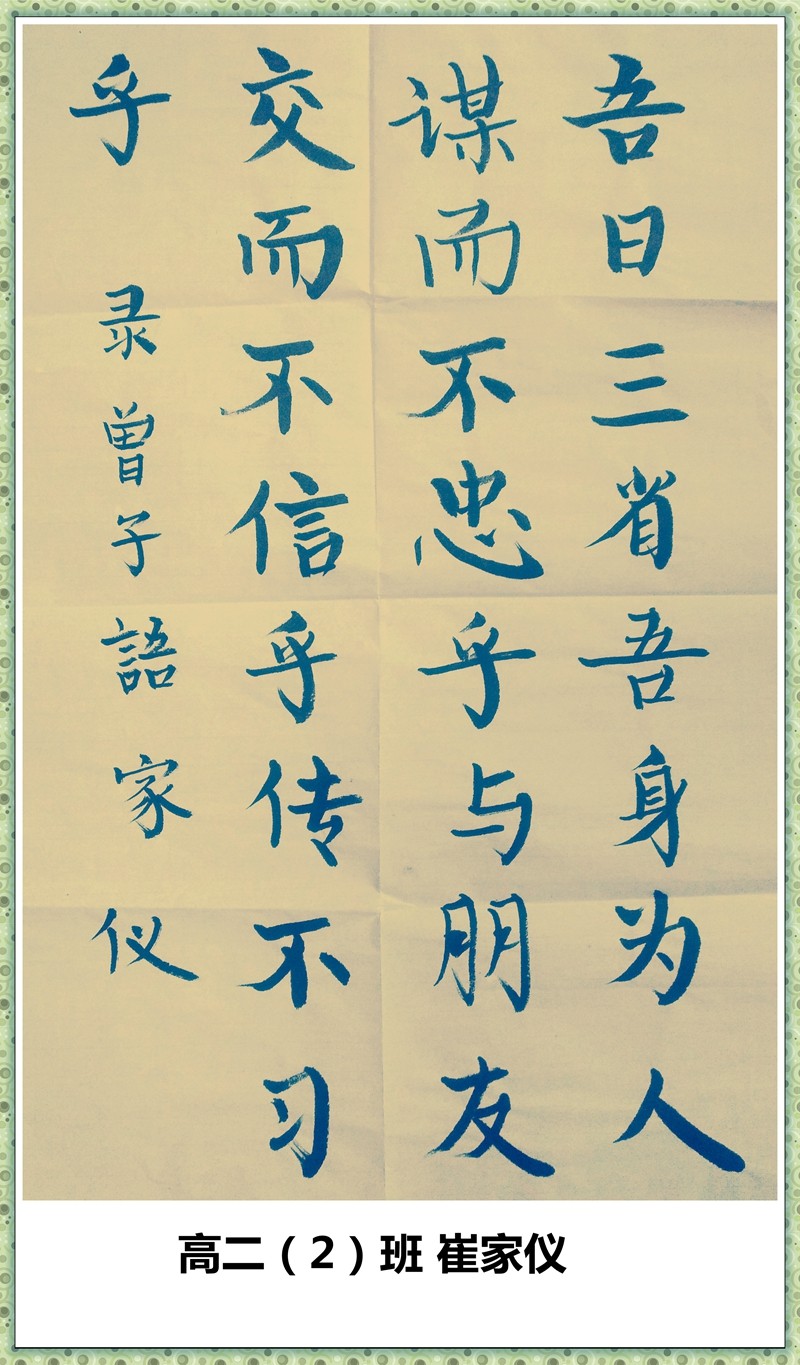 吾日三省吾身为人
谋而不忠乎与朋友
交而不信乎传不习
乎
录曾子語家仪
高二（2）班 崔家仪